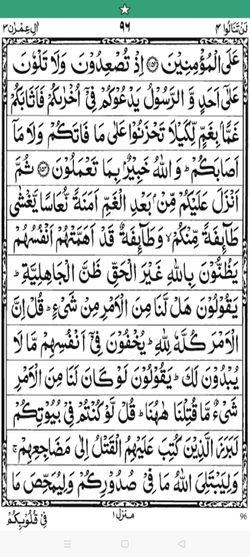 لَنْ تَنَالُوا ۴ ۹۶ اٰلِ عِمْرٰن ۳
عَلَى الْمُؤْمِنِيْنَ ۝۱۵۲ اِذْ تُصْعِدُوْنَ وَلَا تَلْوٗنَ
عَلٰٓى اَحَدٍ وَّ الرَّسُوْلُ يَدْعُوْكُمْ فِيْٓ اُخْرٰىكُمْ فَاَثَابَكُمْ
غَمًّۢا بِغَمٍّ لِّكَيْلَا تَحْزَنُوْا عَلٰى مَا فَاتَكُمْ وَلَا مَآ
اَصَابَكُمْ ؕ وَاللّٰهُ خَبِيْرٌۢ بِمَا تَعْمَلُوْنَ ۝۱۵۳ ثُمَّ
اَنْزَلَ عَلَيْكُمْ مِّنْۢ بَعْدِ الْغَمِّ اَمَنَةً نُّعَاسًا يَّغْشٰى
طَآىِٕفَةً مِّنْكُمْ ۙ وَطَآىِٕفَةٌ قَدْ اَهَمَّتْهُمْ اَنْفُسُهُمْ
يَظُنُّوْنَ بِاللّٰهِ غَيْرَ الْحَقِّ ظَنَّ الْجَاهِلِيَّةِ ؕ
يَقُوْلُوْنَ هَلْ لَّنَا مِنَ الْاَمْرِ مِنْ شَيْءٍ ؕ قُلْ اِنَّ
الْاَمْرَ كُلَّهٗ لِلّٰهِ ؕ يُخْفُوْنَ فِيْٓ اَنْفُسِهِمْ مَّا لَا
يُبْدُوْنَ لَكَ ؕ يَقُوْلُوْنَ لَوْ كَانَ لَنَا مِنَ الْاَمْرِ
شَيْءٌ مَّا قُتِلْنَا هٰهُنَا ؕ قُلْ لَّوْ كُنْتُمْ فِيْ بُيُوْتِكُمْ
لَبَرَزَ الَّذِيْنَ كُتِبَ عَلَيْهِمُ الْقَتْلُ اِلٰى مَضَاجِعِهِمْ ۚ
وَلِيَبْتَلِيَ اللّٰهُ مَا فِيْ صُدُوْرِكُمْ وَلِيُمَحِّصَ مَا
فِيْ قُلُوْبِكُمْ منزل ۱ 96